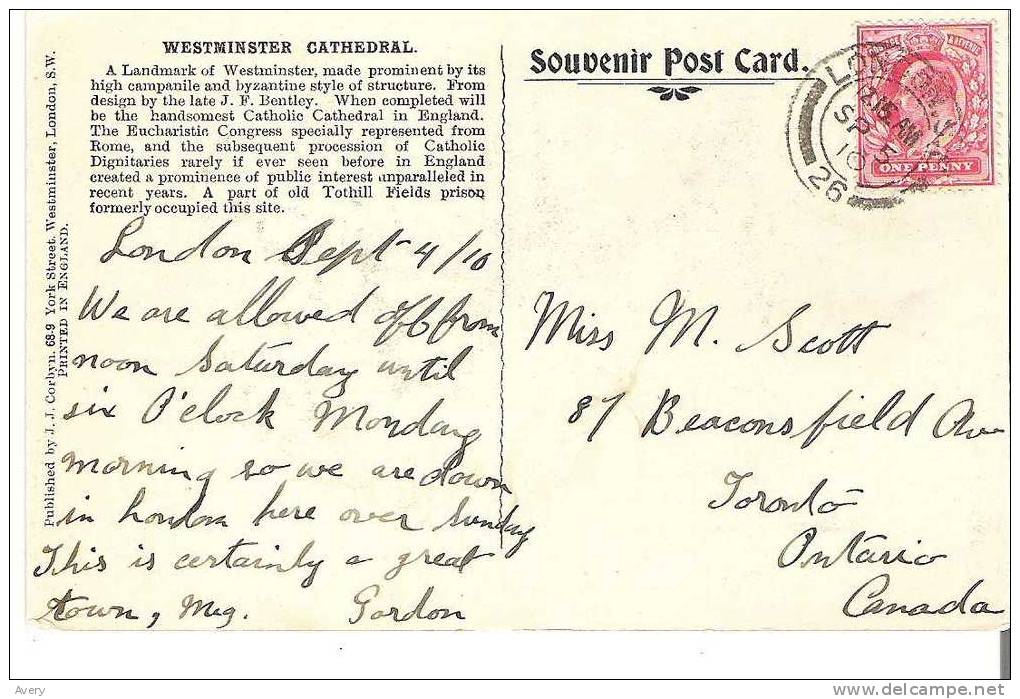 WESTMINSTER CATHEDRAL.
A Landmark of Westminster, made prominent by its
high campanile and byzantine style of structure. From
design by the late J. F. Bentley. When completed will
be the handsomest Catholic Cathedral in England.
The Eucharistic Congress specially represented from
Rome, and the subsequent procession of Catholic
Dignitaries rarely if ever seen before in England
created a prominence of public interest unparalleled in
recent years. A part of old Tothill Fields prison
formerly occupied this site.
London Sept 4/10
We are allowed off from
noon Saturday until
six O'clock Monday
morning so we are down
in London here over Sunday
This is certainly a great
town, Meg. Gordon
Published by J. J. Corbyn. 68-9 York Street. Westminster, London, S.W.
PRINTED IN ENGLAND.
Souvenir Post Card.
LONDON
12.15 AM
SP 5
10
26
ONE PENNY
Miss M. Scott
87 Beaconsfield Ave
Toronto
Ontario
Canada
Avery
www.delcampe.net